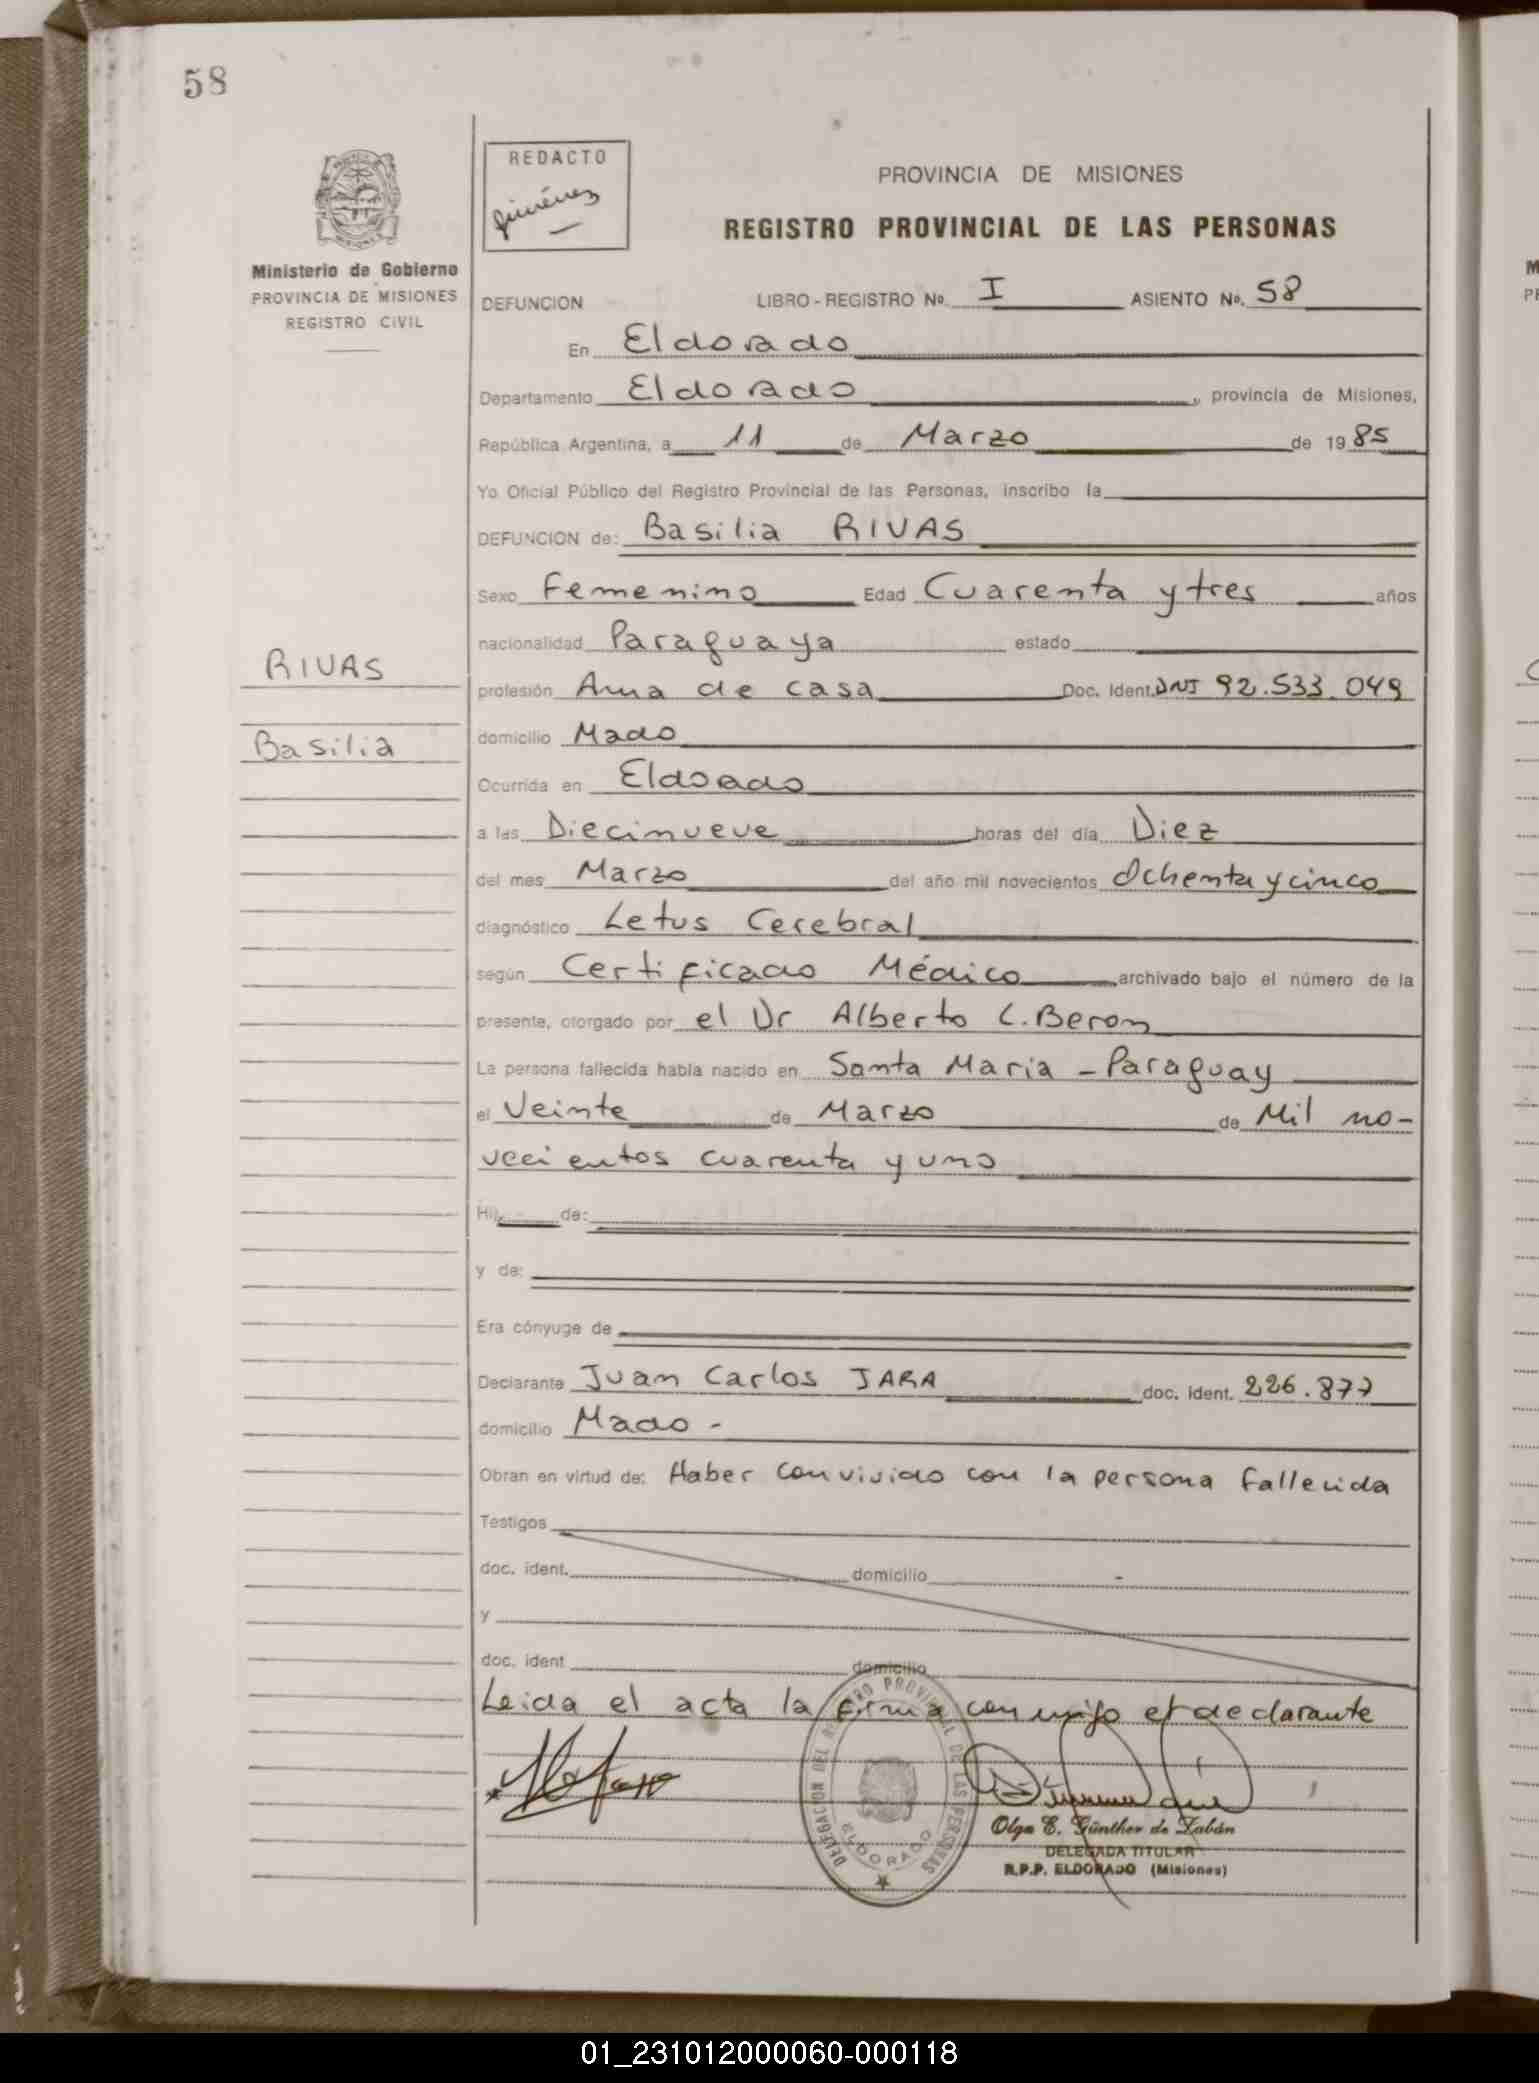 58
MISIONES
Ministerio de Gobierno
PROVINCIA DE MISIONES
REGISTRO CIVIL
RIVAS
Basilia
REDACTO
Giménez
PROVINCIA DE MISIONES
REGISTRO PROVINCIAL DE LAS PERSONAS
DEFUNCION LIBRO - REGISTRO Nº. I ASIENTO Nº. 58
En Eldorado
Departamento Eldorado, provincia de Misiones,
República Argentina, a 11 de Marzo de 1985
Yo Oficial Público del Registro Provincial de las Personas, inscribo la
DEFUNCION de: Basilia RIVAS
Sexo Femenino Edad Cuarenta y tres años
nacionalidad Paraguaya estado
profesión Ama de casa Doc. Ident. DNI 92.533.049
domicilio Mado
Ocurrida en Eldorado
a las Diecinueve horas del día Diez
del mes Marzo del año mil novecientos Ochenta y cinco
diagnóstico Letus Cerebral
según Certificado Médico archivado bajo el número de la
presente, otorgado por el Dr Alberto C. Beron
La persona fallecida había nacido en Santa Maria - Paraguay
el Veinte de Marzo de Mil no-
vecientos cuarenta y uno
Hij de:
y de:
Era cónyuge de
Declarante Juan Carlos JARA doc. ident. 226.877
domicilio Mado -
Obran en virtud de: Haber convivido con la persona fallecida
Testigos
doc. ident. domicilio
y
doc. ident domicilio
Leida el acta la firma conmigo el declarante
DELEGACION DEL REGISTRO PROVINCIAL DE LAS PERSONAS
ELDORADO
Olga E. Günther de Zabán
DELEGADA TITULAR
R.P.P. ELDORADO (Misiones)
01_231012000060-000118